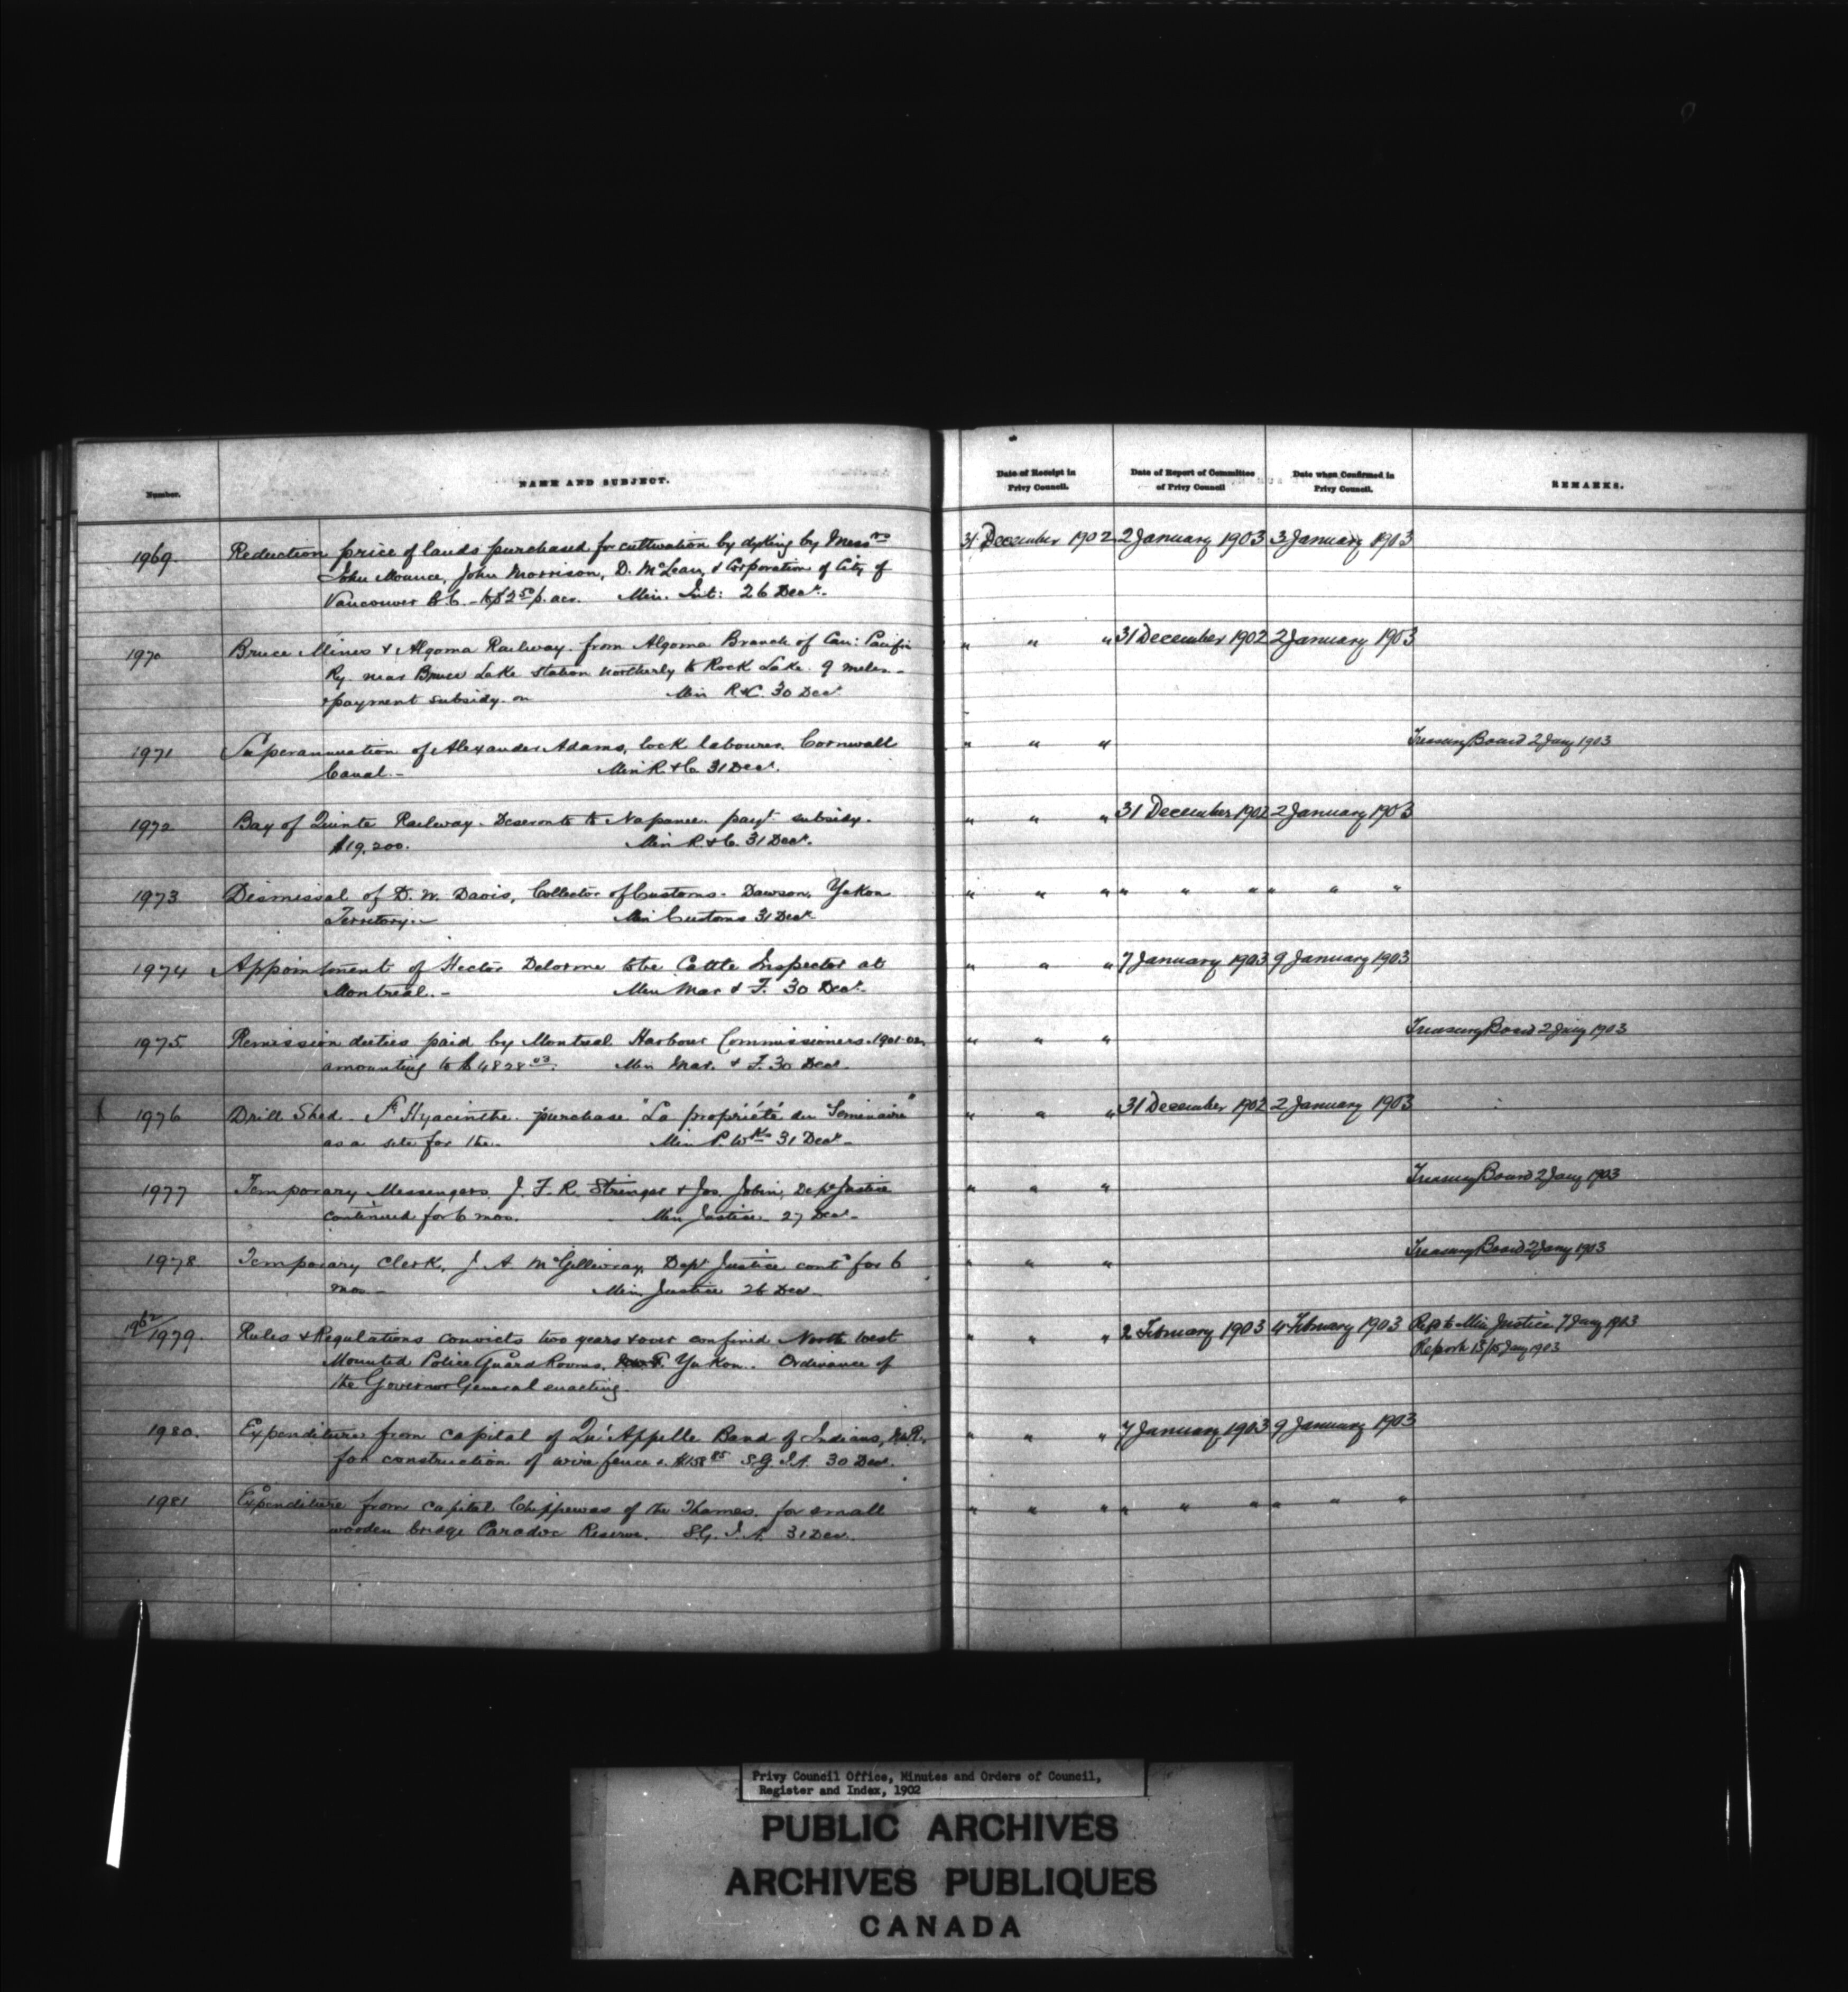 Number.
NAME AND SUBJECT.
Date of Receipt in
Privy Council.
Date of Report of Committee
of Privy Council
Date when Confirmed in
Privy Council.
REMARKS.
1969. Reduction price of lands purchased for cultivation by dyking by Messrs 31 December 1902 2 January 1903 3 January 1903
John Mounce, John Morrison, D. McLean, & Corporation of City of
Vancouver B.C. - to $2 50 p. acr. Min. Int: 26 Decr.
1970 Bruce Mines & Algoma Railway. from Algoma Branch of Can: Pacific " " " 31 December 1902 2 January 1903
Ry. near Bruce Lake station northerly to Rock Lake. 9 miles. -
payment subsidy on Min R & C. 30 Decr
1971 Superannuation of Alexander Adams, lock labourer, Cornwall " " " Treasury Board 2 Jany 1903
Canal. - Min R. & C. 31 Decr.
1972 Bay of Quinte Railway. Deseronto to Napanee. payt. subsidy. " " " 31 December 1902 2 January 1903
$19,200. Min R. & C. 31 Decr.
1973 Dismissal of D. W. Davis, Collector of Customs. Dawson, Yukon " " " " " " " " "
Territory. - Min Customs 31 Decr
1974 Appointment of Hector Delorme to be Cattle Inspector at " " " 7 January 1903 9 January 1903
Montreal. - Min Mar & F. 30 Decr.
1975 Remission duties paid by Montreal Harbour Commissioners. 1901-02, " " " Treasury Board 2 Jany 1903
amounting to $4828 03. Min Mar. & F. 30 Decr.
1976 Drill Shed. St Hyacinthe. purchase "La propriété du Seminaire" " " " 31 December 1902 2 January 1903
as a site for the. Min P. Wks 31 Decr -
1977 Temporary Messengers. J. F. R. Stringer & Jos. Jobin, Dept Justice " " " Treasury Board 2 Jany 1903
continued for 6 mos. Min Justice 27 Decr -
1978 Temporary Clerk, J. A. McGillivray, Dept Justice contd for 6 " " " Treasury Board 2 Jany 1903
mos - Min Justice 26 Decr
1962/1979. Rules & Regulations convicts two years & over confined North West " " " 2 February 1903 4 February 1903 Rep to Min Justice 7 Jany 1903
Mounted Police Guard Rooms, Yukon. Ordinance of Report 13/15 Jany 1903
the Governor General enacting.
1980. Expenditure from capital of Qu'Appelle Band of Indians, " " " 7 January 1903 9 January 1903
for construction of wire fence. $158 85 S.G. I.A. 30 Decr.
1981 Expenditure from capital Chippewas of the Thames. for small " " " " " " " " "
wooden bridge Caradoc Reserve. S.G. I.A. 31 Decr.
Privy Council Office, Minutes and Orders of Council,
Register and Index, 1902
PUBLIC ARCHIVES
ARCHIVES PUBLIQUES
CANADA